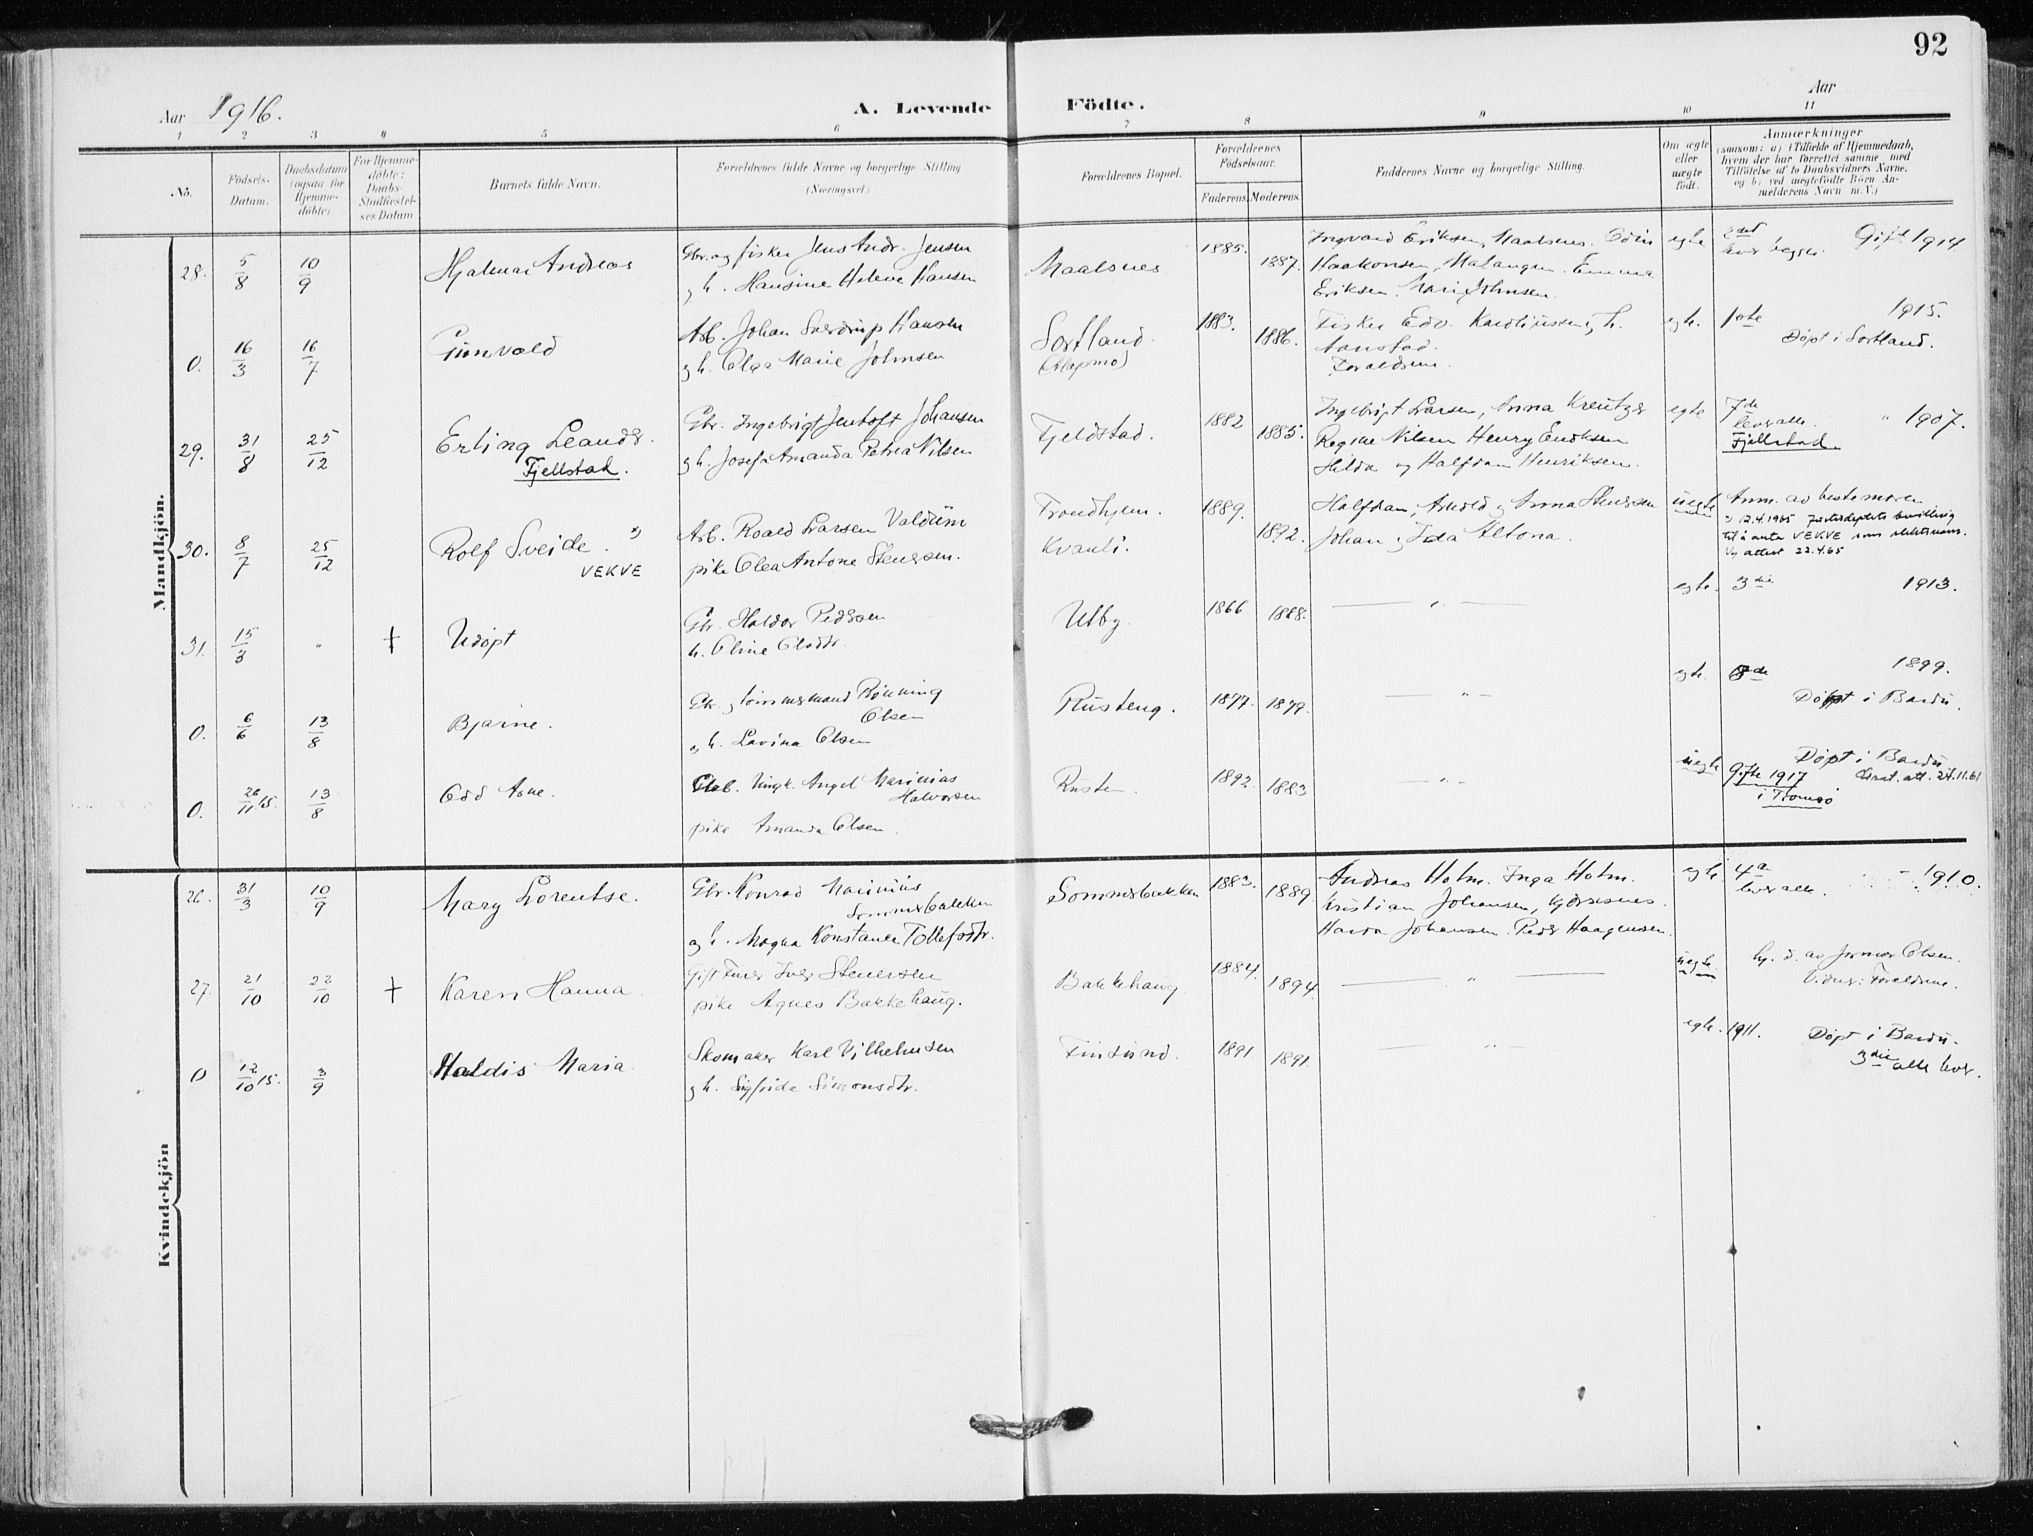 92
Aar 1916.
A. Levende Födte.
Aar
1 2 3 4 5 6 7 8 9 10 11
No.
Födsels-Datum.
Daabsdatum (ogsaa for Hjemme-döbte)
For Hjemme-döbte: Daabs-Stadfæstel-ses Datum
Barnets fulde Navn.
Forældrenes fulde Navne og borgerlige Stilling (Næringsvei.)
Forældrenes Bopæl.
Forældrenes Födselsaar.
Faderens. Moderens.
Faddernes Navne og borgerlige Stilling.
Om ægte eller uægte født.
Anmærkninger
(saasom: a) i Tilfælde af Hjemmedaab, hvem der har forrettet samme med Tilföielse af to Daabsvidners Navne, og b) ved uægtefödte Börn An-melderens Navn m. V.)
Mandkjön.
28. 5/8 10/9 Hjalmar Andreas
Gbr. og fisker Jens Andr. Jensen
og h. Hansine Helene Hansen
Maalsnes 1885. 1887.
Ingvard Eriksen, Maalsnes. Odin
Haakonsen, Malangen. Emma
Eriksen. Marie Johnsen.
egte Gift 1914
0. 16/3 16/7 Gunvald
Arb. Johan Sverdrup Hansen
og h. Olga Marie Johnsen
Sortland 1883. 1886.
Fisker Edv. h.
Forældrene.
egte. 1ste 1915.
Döpt i Sortland.
29. 31/8 25/12 Erling Leander.
Fjellstad.
Gbr. Ingebrigt Jentoft Johansen
og h. Josefa Amanda Petrea Nilsen
Fjeldstad. 1882 1885.
Ingebrigt Larsen, Anna Kreutzer
Regine Nilsen Henry Eriksen
Hilda og Halfdan Henriksen.
egte 7de lever alle. " 1907.
Fjellstad.
30. 8/7 25/12 Rolf Sveide.
VEKVE
Arb. Roald Larsen Valdum
pike Olea Antone Steversen.
Trondhjem. Kvanli. 1889. 1892.
Halfdan, Arnold og Anna Steversen
Johan og Ida Altona.
uegte Anm. av bestemoren
12.4.1965 bevilling
til å anta VEKVE som slektsnavn.
attest 22.4.65
31. 15/3 " † Udøpt
Gbr. Haldor Pedersen
h. Oline Olsdtr.
Utby 1866 1868.
— " —
egte. 3die 1913.
0. 6/6 13/8 Bjarne.
Gbr. og tømmermand Rönning
Olsen
og h. Lavina Olsen
Rusteng. 1877. 1879.
— " —
egte. 1899.
Döpt i Bardu.
0. 26/11 15. 13/8 Odd Arne.
Ungk. Angel Marinius
Halvorsen
pike Amanda Olsen.
Rusten. 1892. 1883
— " —
uegte Döpt i Bardu
gifte 1917 att. 27.11.61
i Tromsö
Kvindekjön
26. 31/3 10/9 Mary Lorentse.
Gbr. Konrad Marinius
Sommerbakken
og h. Magna Konstance Tollefsdtr.
Sommerbakken 1883. 1889.
Andreas Holm. Inga Holm.
Kristian Johansen, Kjerresnes.
Johansen. Peder Haagensen.
egte 4a lever alle. 1910.
27. 21/10 22/10 † Karen Hanna.
Gift Iver Steversen
pike Agnes Bakkehaug.
Bakkehaug 1884. 1894.
— " —
uegte hj. d. av Olsen.
Vidner: Forældrene.
0 12/10 15. 3/9 Haldis Maria.
Skomaker Karl Vilhelmsen
og h. Sigfrida Simonsdtr.
Finsund. 1891. 1891.
— " —
egte. 1911. Döpt i Bardu.
3die alle lever.